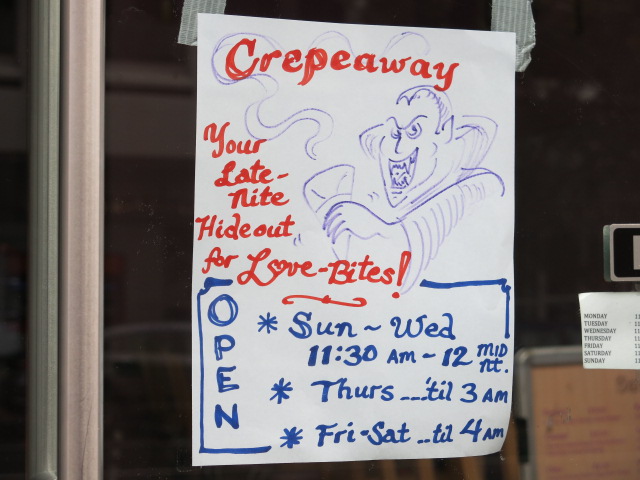 Crepeaway
Your
Late-
Nite
Hideout
for Love-Bites!
OPEN
* Sun ~ Wed
11:30 AM - 12 MID NT.
* Thurs ...'til 3 AM
* Fri-Sat ..til 4 AM
MONDAY
TUESDAY
WEDNESDAY
THURSDAY
FRIDAY
SATURDAY
SUNDAY